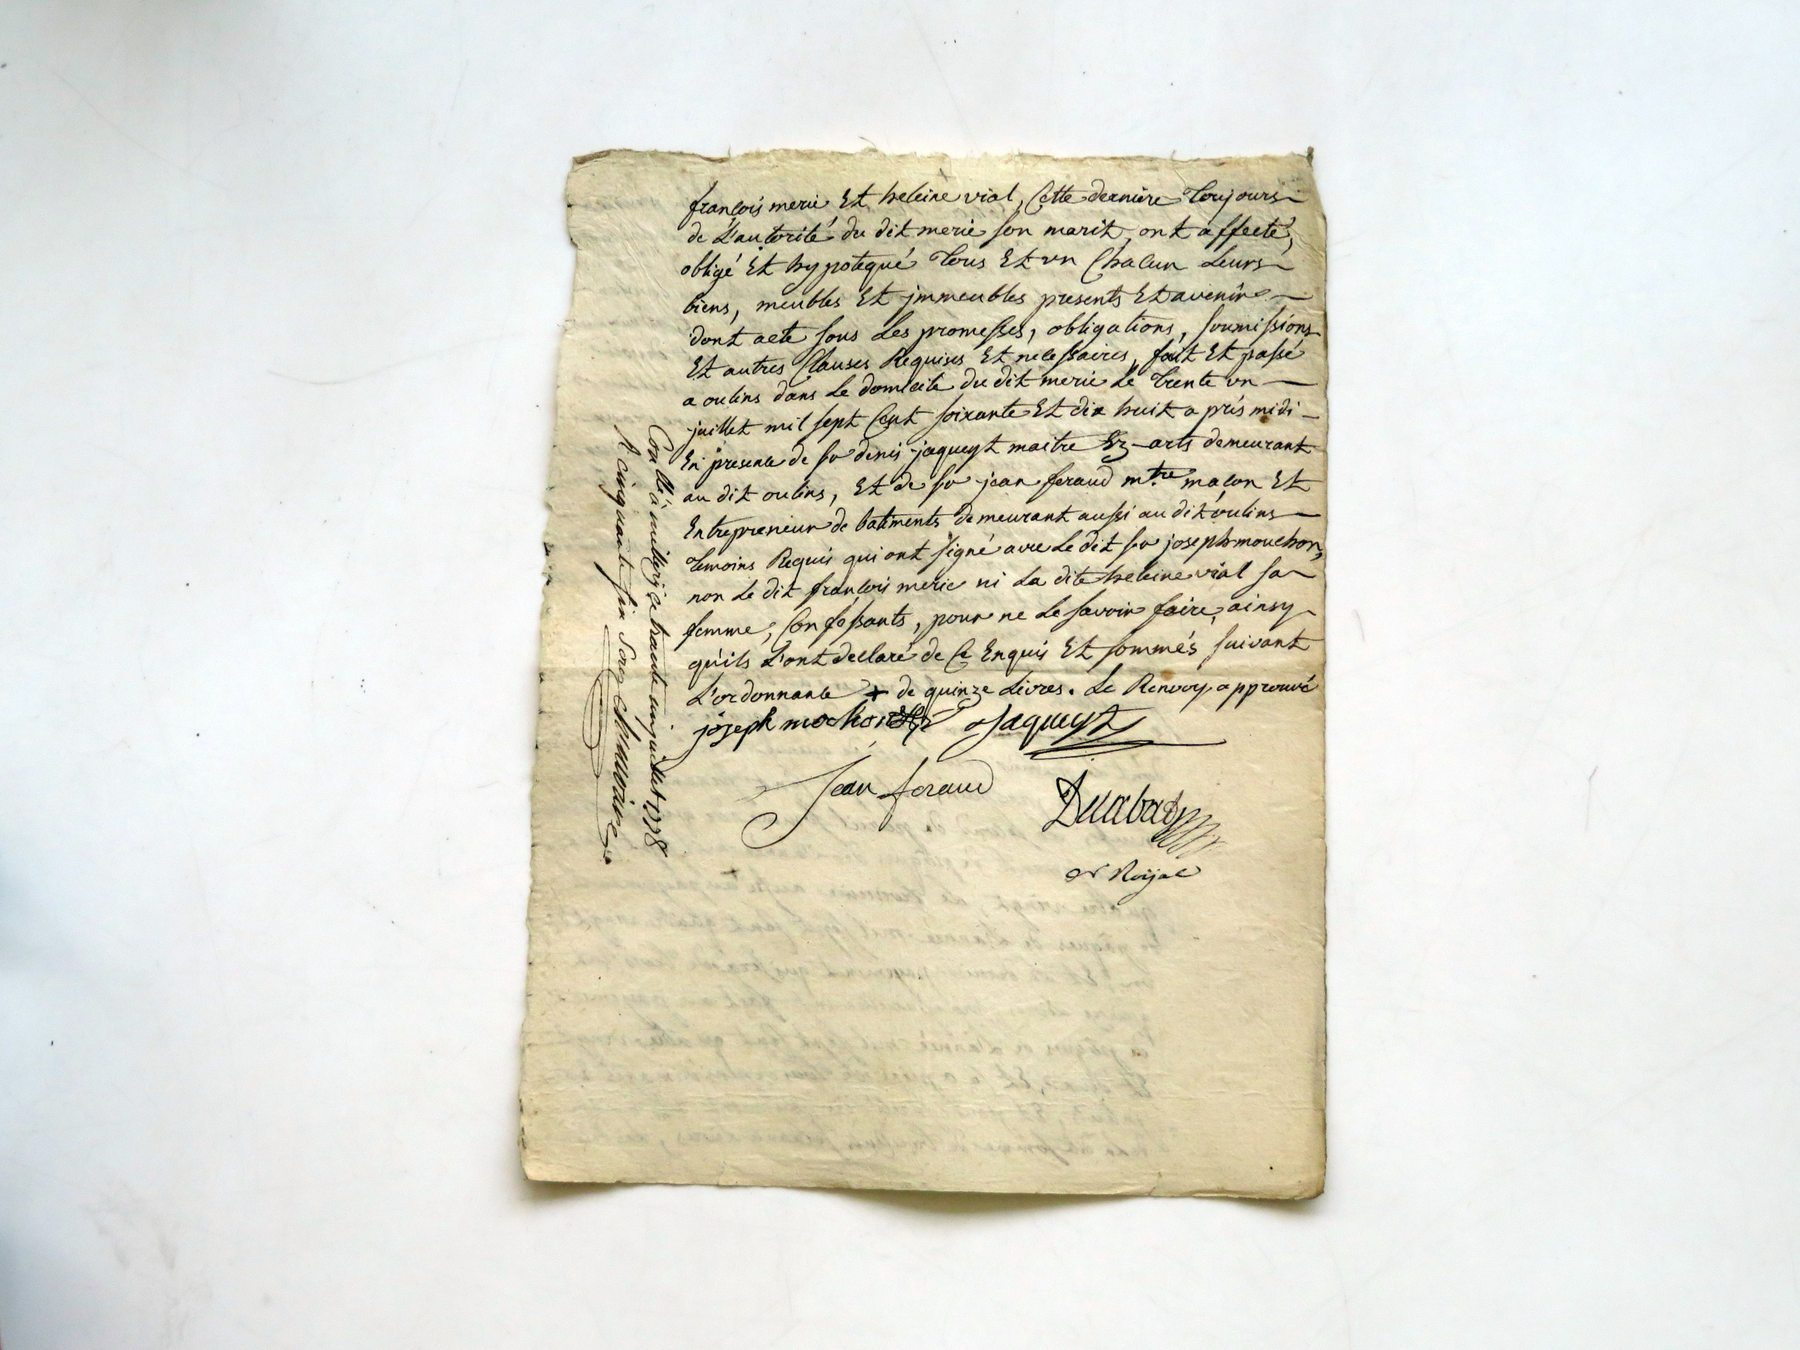 françois merie Et heleine vial, Cette derniere Toujours
de L'autorité du dit merie son marit, ont affecté,
obligé Et hypotequé Tous Et un Chacun Leurs
biens, meubles Et jmmeubles presents Et avenir
dont acte sous Les promesses, obligations, soumissions
Et autres Clauses Requises Et necessaires, fait Et passé
a oulins dans Le domicile du dit merie Le Trente un
juillet mil sept Cent soixante Et dix huit a prés midi
En presence de sr denis jaqueyt maitre Ez-arts demeurant
au dit oulins, Et de sr jean feraud mtre maçon Et
Entrepreneur de batiments demeurant aussi au dit oulins
Temoins Requis qui ont signé avec Le dit sr joseph mouchon,
non Le dit françois merie ni La dite heleine vial sa
femme, Confessants, pour ne Le savoir faire, ainsy
qu'ils L'ont declaré de Ce Enquis Et sommés suivant
L'ordonnance + de quinze Livres. Le Renvoy approuvé
joseph mochon Jaqueyt
Jean feraud
nre Royal
Conllé à millery ce trante un juillet 1778
R cinquante six sous